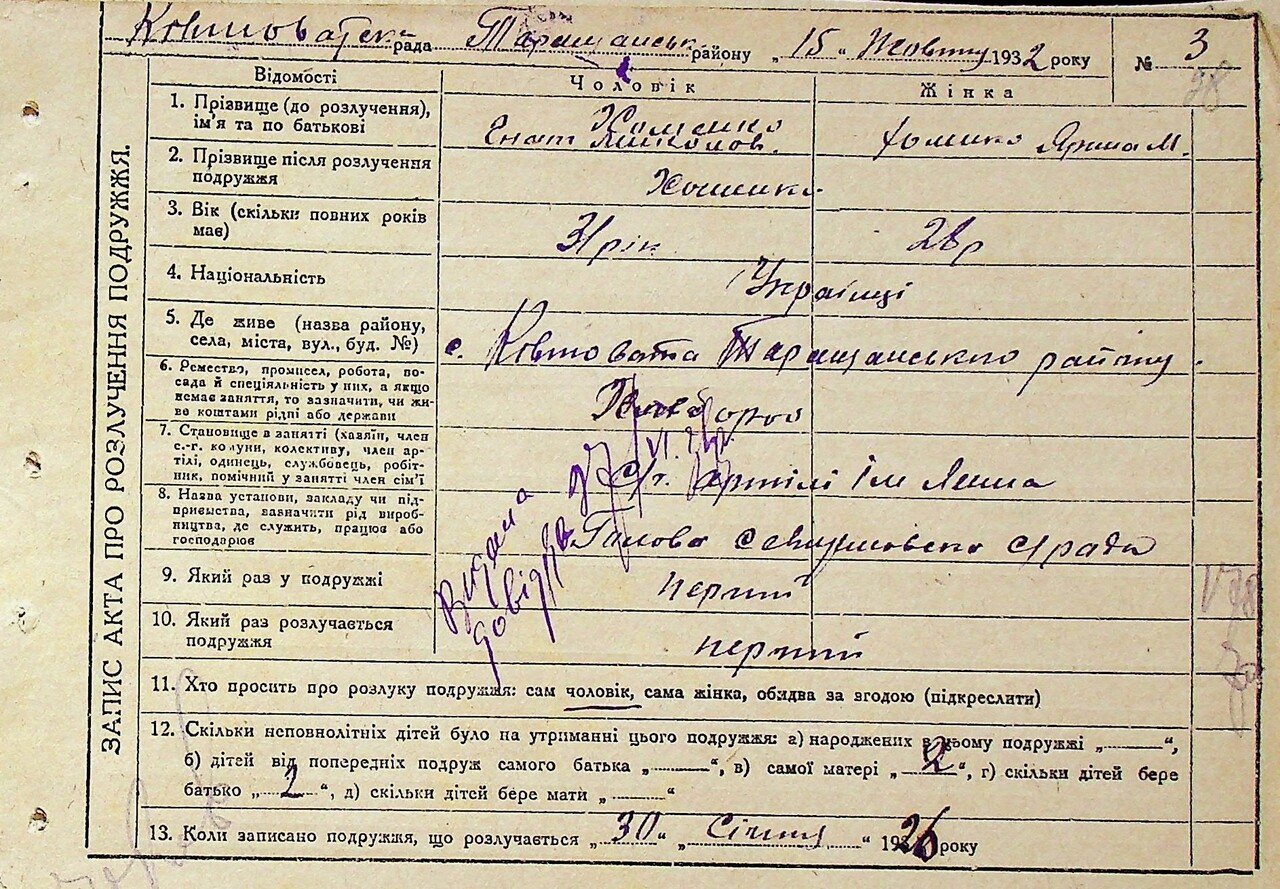 Ковшоватська рада Таращанськ району „15“ Жовтня 1932 року № 3
98
ЗАПИС АКТА ПРО РОЗЛУЧЕННЯ ПОДРУЖЖЯ.
Відомості Чоловік Жінка
1. Прізвище (до розлучення), ім'я та по батькові
Хоменко
Енат Миколов. Хоменко Ярина М.
2. Прізвище після розлучення подружжя
Хоменко
3. Вік (скільки повних років має)
31 рік 28 р
4. Національність
Українці
5. Де живе (назва району, села, міста, вул., буд. №)
с. Ковшовата Таращанського району
6. Ремество, промисел, робота, посада й спеціяльність у них, а якщо немає заняття, то зазначити, чи живе коштами рідні або держави
7. Становище в занятті (хазяїн, член с.-г. комуни, колективу, член артілі, одинець, службовець, робітник, помічний у занятті член сім'ї
С/г. артілі ім
8. Назва установи, закладу чи підприємства, зазначити рід виробництва, де служить, працює або господарює
Голова
9. Який раз у подружжі
перший
10. Який раз розлучається подружжя
перший
Видана
довідка
11. Хто просить про розлуку подружжя: сам чоловік, сама жінка, обидва за згодою (підкреслити)
12. Скільки неповнолітніх дітей було на утриманні цього подружжя: а) народжених в цьому подружжі „ “,
б) дітей від попередніх подруж самого батька „ “, в) самої матері „2“, г) скільки дітей бере
батько „2“, д) скільки дітей бере мати „ “
13. Коли записано подружжя, що розлучається „30“ „Січня“ 1926 року